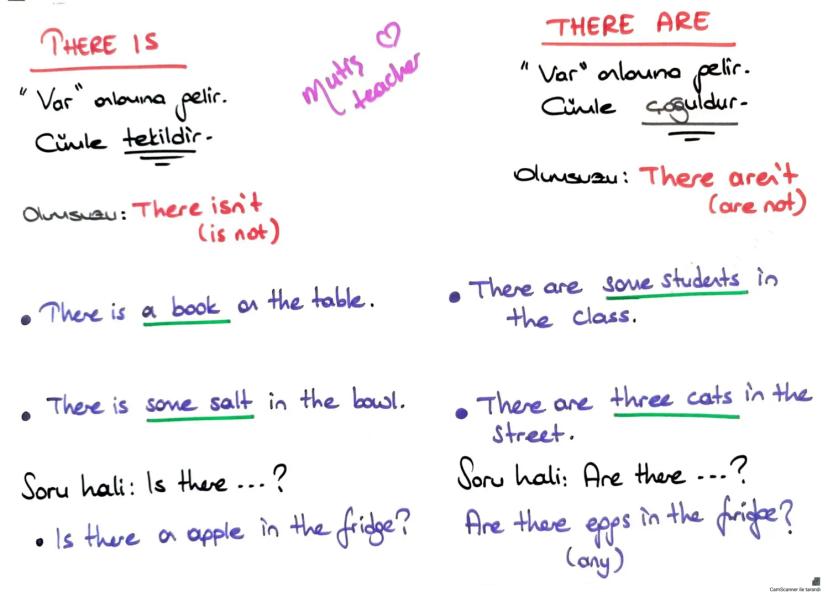 THERE IS
"Var" anlamına gelir.
Cümle tekildir.
Olumsuzu: There isn't
(is not)
• There is a book on the table.
• There is some salt in the bowl.
Soru hali: Is there ...?
• Is there a apple in the fridge?
Mutiş
teacher
THERE ARE
"Var" anlamına gelir.
Cümle çoğuldur.
Olumsuzu: There aren't
(are not)
• There are some students in
the class.
• There are three cats in the
street.
Soru hali: Are there ...?
Are there eggs in the fridge?
(any)
CamScanner ile tarandı